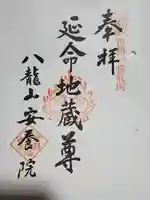 奉拝
延命地蔵尊
八龍山安養院